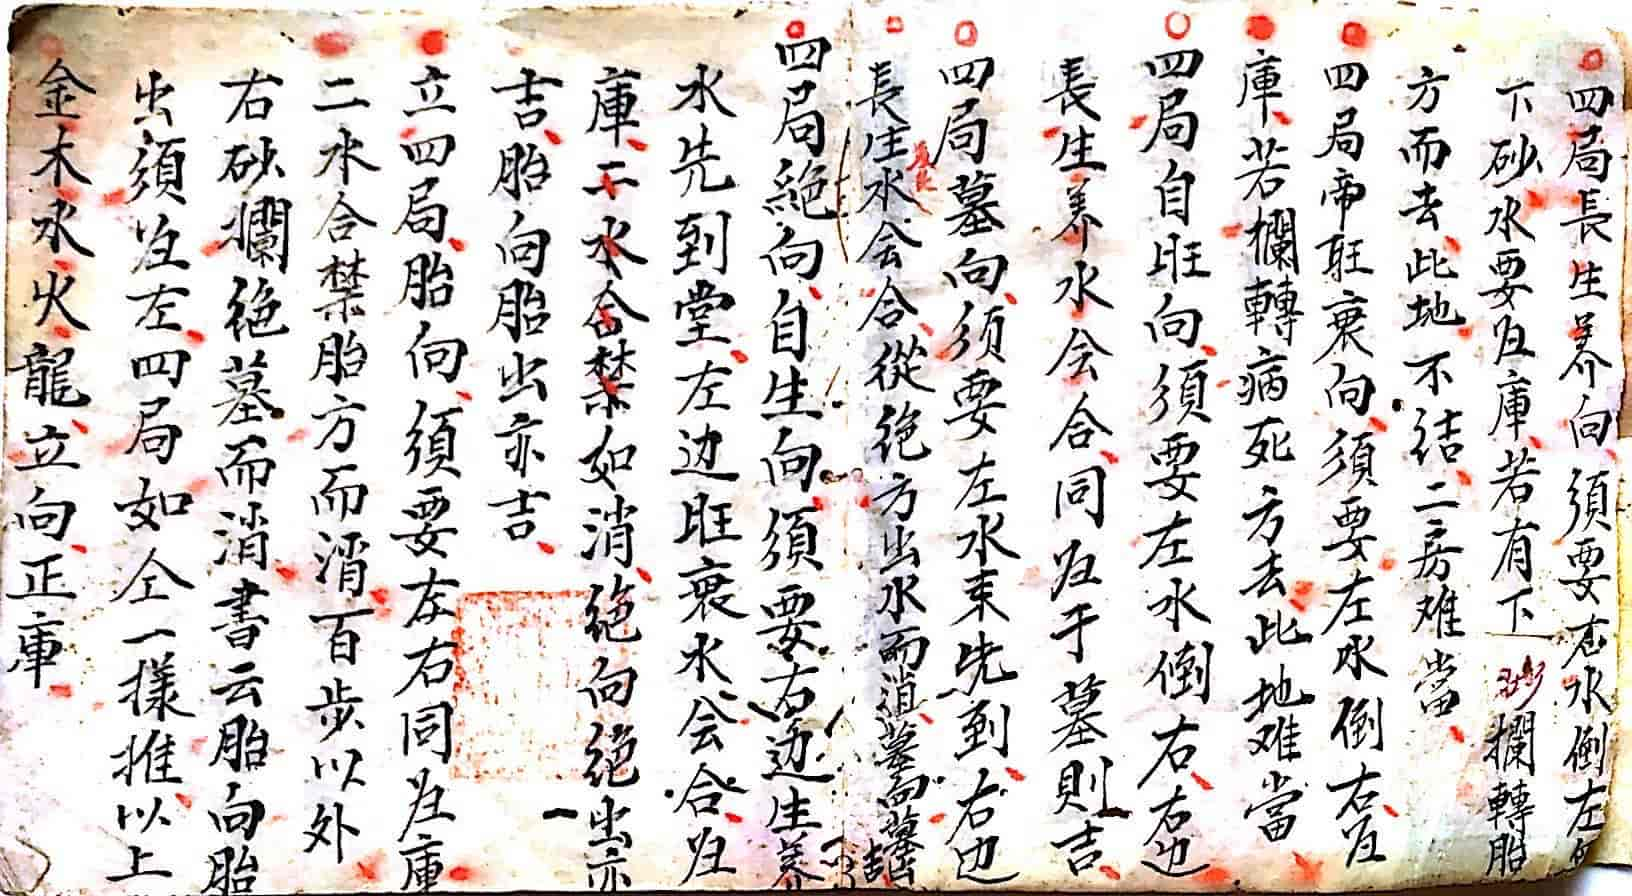 四局長生养向須要右水倒左
下砂水要归庫若有下砂攔轉胎
方而去此地不结二房难當
四局帝旺衰向須要左水倒右归
庫若攔轉病死方去此地难當
四局自旺向須要左水倒右右边
長生养水会合同归于墓則吉
四局墓向须要左水来先到右边
長生水会合從绝方出水而消墓向墓出吉
四局絕向自生向須要右边生养
水先到堂左边旺衰水会合归
庫二水合禁如消绝向绝出亦
吉胎向胎出亦吉
立四局胎向須要左右同归庫
二水合禁胎方而消百步以外
右砂攔绝墓而消書云胎向胎
出須归左四局如仝一樣推以上
金木水火龍立向正庫